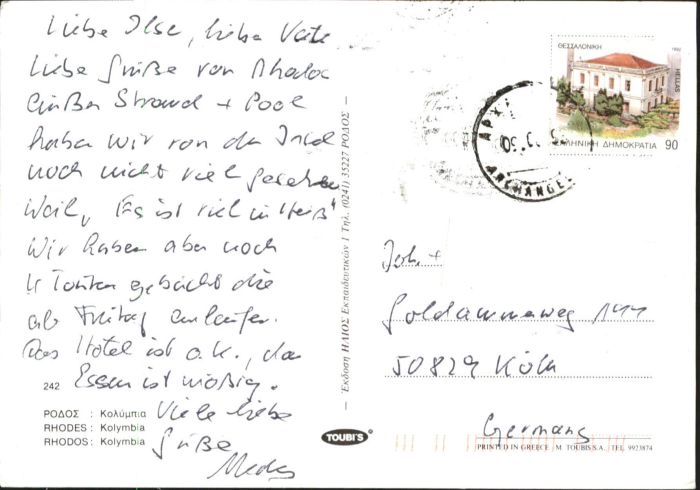 Liebe Ilse, liebe Vati
liebe Grüße von Rhodos
außer Strand + Pool
haben wir von der Insel
noch nicht viel gesehen
Weil, "Es ist viel zu Heiß"
Wir haben aber noch
4 Touren gebucht die
ab Freitag anlaufen.
Das Hotel ist o.k., das
Essen ist mäßig.
Viele liebe
Grüße
242
ΡΟΔΟΣ : Κολύμπια
RHODES : Kolymbia
RHODOS : Kolymbia
Έκδοση ΗΛΙΟΣ Εκπαιδευτικών 1 Τηλ. (0241) 35227 ΡΟΔΟΣ
TOUBI'S
ΘΕΣΣΑΛΟΝΙΚΗ
1992
HELLAS
ΕΛΛΗΝΙΚΗ ΔΗΜΟΚΡΑΤΙΑ 90
ARCHANGEL
Goldammerweg 144
50829 Köln
Germany
PRINTED IN GREECE M. TOUBIS S.A. TEL 9923874